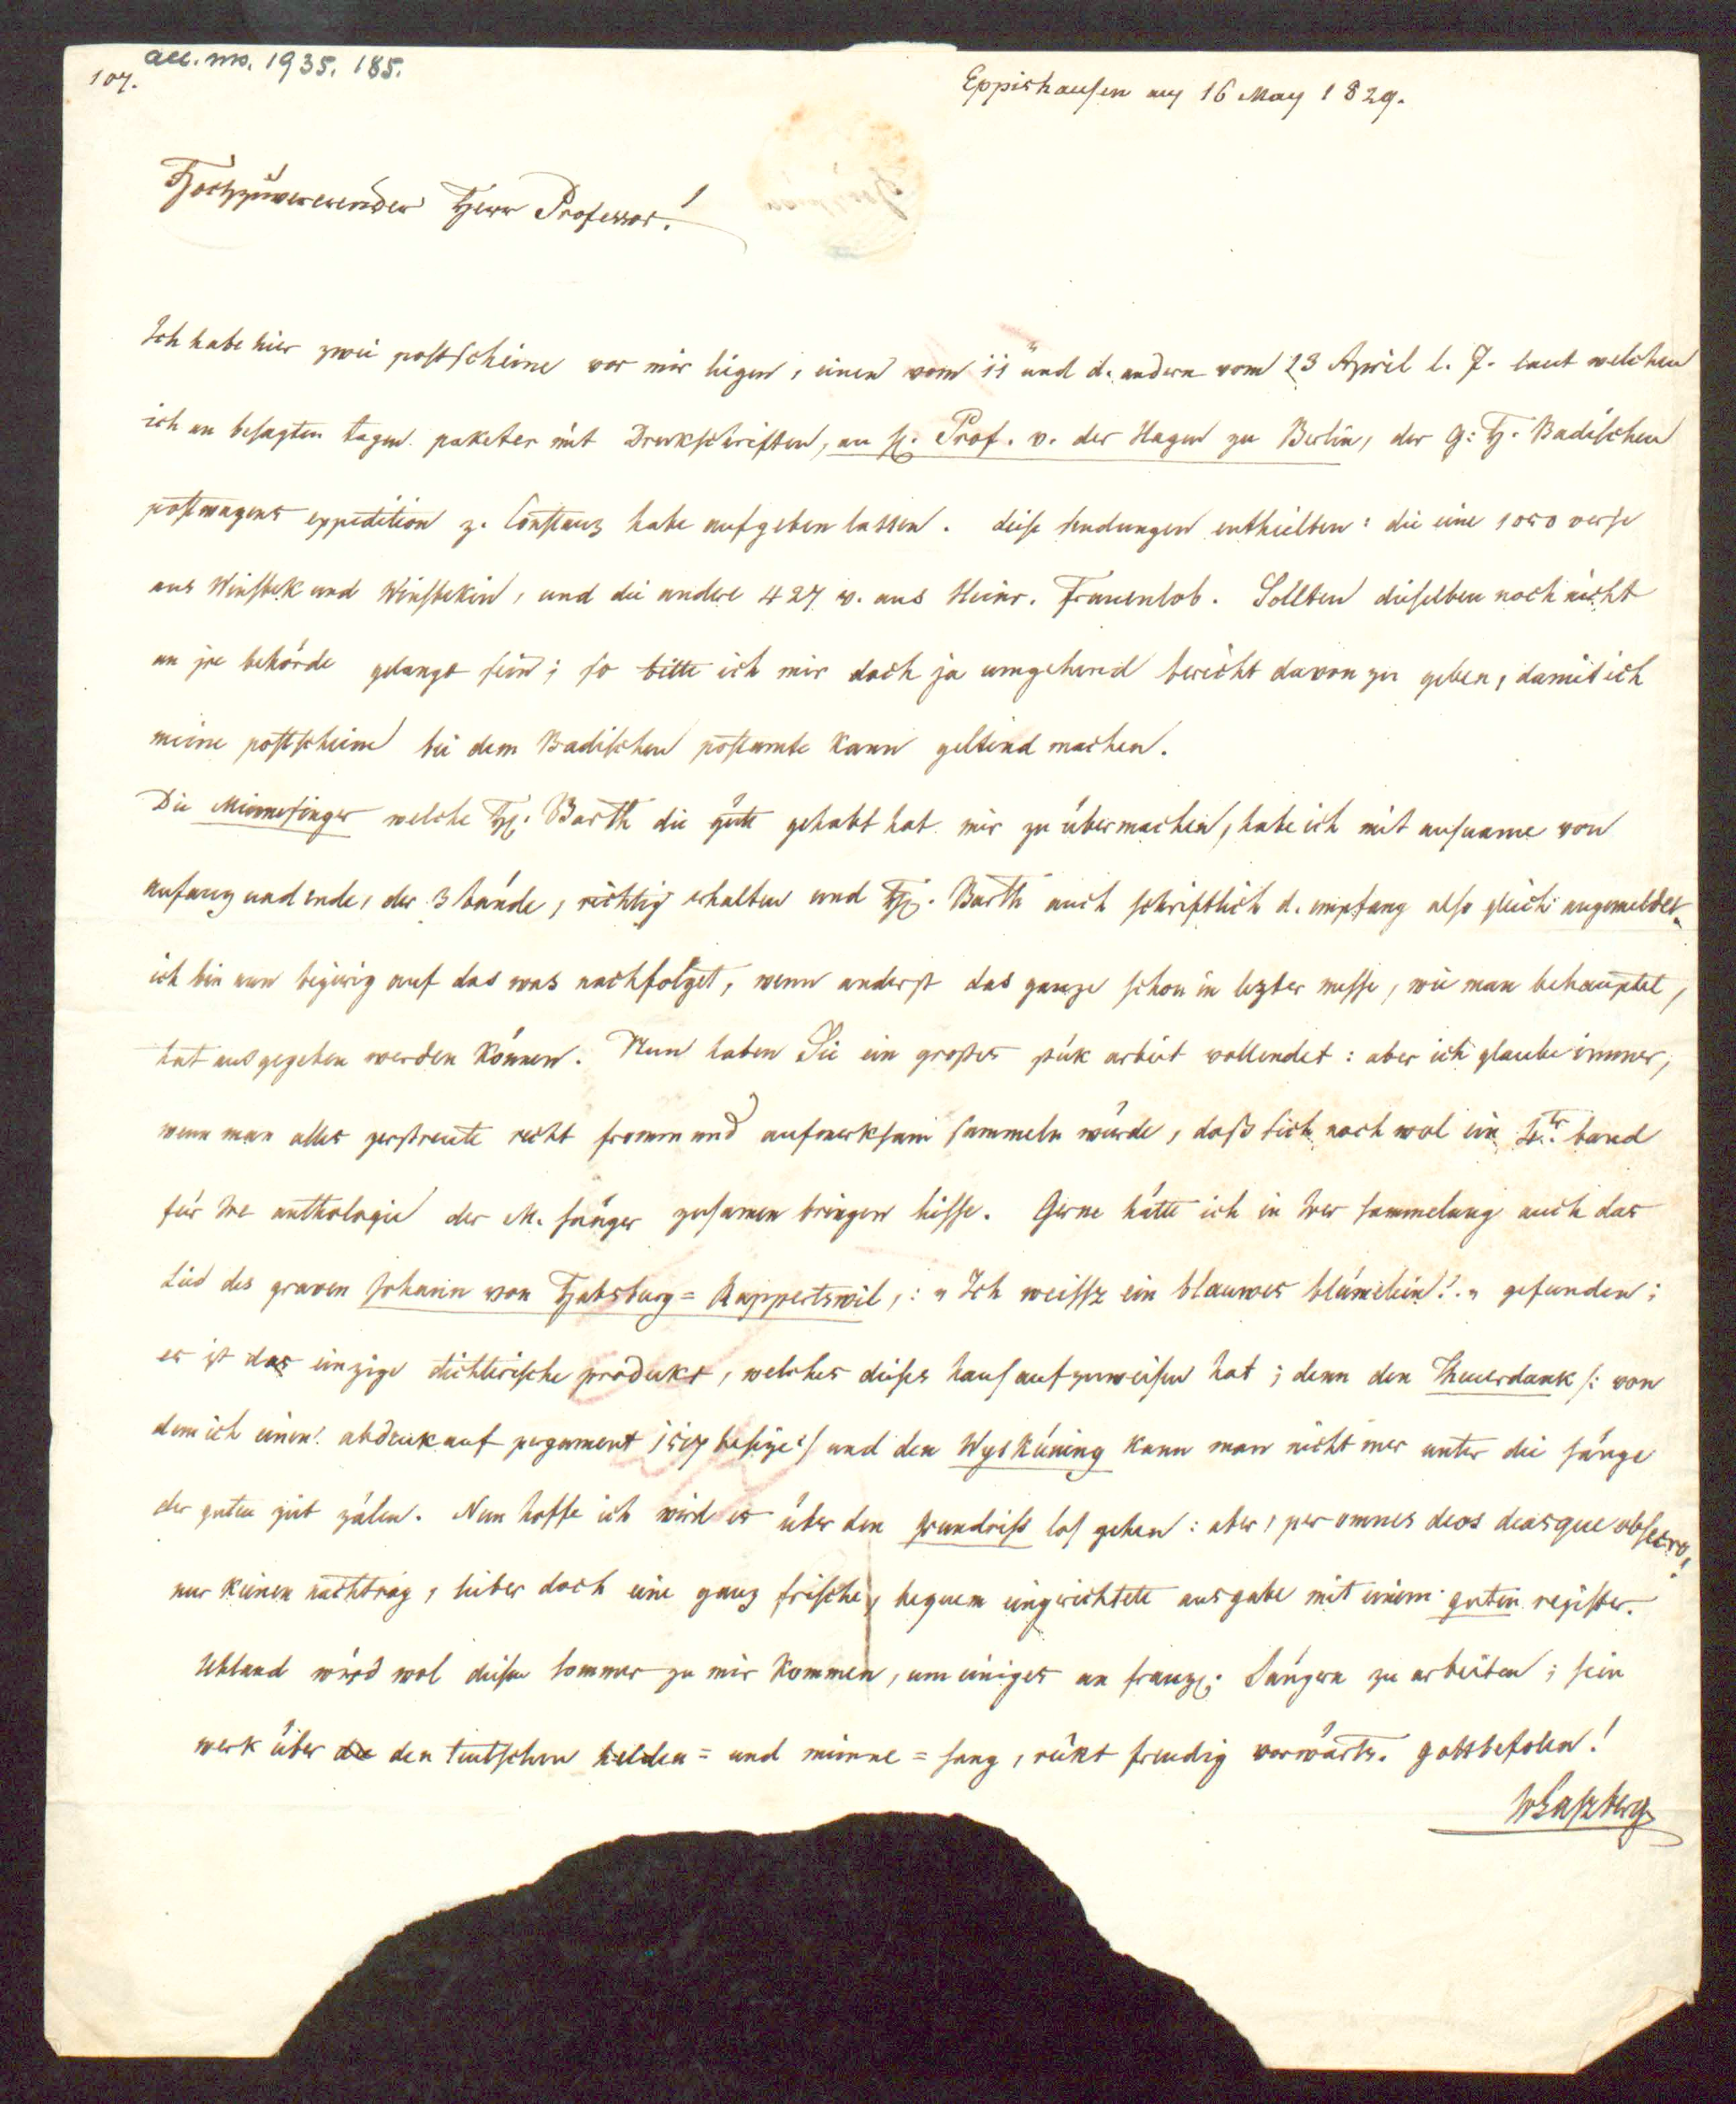 acc. ms. 1935. 185.
107.
Eppishausen am 16 May 1829.
Hochzuvererender Herr Professor!
Ich habe hier zwei postscheine vor mir ligen, einen vom 11 und d. andern vom 23 April l. J. laut welchen
ich an besagten tagen paketer mit Drukschriften, an H. Prof. v. der Hagen zu Berlin, der G: H. Badischen
postwagens expedition z. Constanz habe aufgeben lassen. diese sendungen enthielten: die eine 1050 verse
aus Winsbek und Winsbekin, und die andere 427 v. aus Heinr. Frauenlob. Sollten dieselben noch nicht
an jre behörde gelangt sein; so bitte ich mir doch ja umgehend bericht davon zu geben, damit ich
meine postscheine bei dem Badischen postamte kann geltend machen.
Die Minnesinger welche H. Barth die güte gehabt hat mir zu übermachen, habe ich mit ausname von
anfang und ende, der 3 bände, richtig erhalten und H. Barth auch schriftlich d. empfang also gleich angemeldet.
ich bin nun begierig auf das was nachfolget, wenn anderst das ganze schon in lezter messe, wie man behauptet,
hat ausgegeben werden können. Nun haben Sie ein grosses stük arbeit vollendet: aber ich glaube immer,
wenn man alles zerstreute recht fromm und aufmerksam sammeln würde, daß sich noch wol ein 4.ter band
für Ire anthologie der M. sänger zusamen bringen liesse. Gerne hätte ich in Irer sammelung auch das
Lied des graven Johann von Habsburg=Rappertswil,: „Ich weissz ein blauwes blümelein!„ gefunden;
es ist das einzige dichterische produkt, welches dieses haus aufzuweisen hat; denn den Theuerdank /: von
dem ich einen abdruk auf pergament 1517 besize:/ und den Wyskúning kann man nicht mer unter die sänge
der guten zeit zälen. Nun hoffe ich wird es über den grundriss los gehen: aber, per omnes deos deasque obsecro,
nur keinen nachtrag, lieber doch eine ganz frische, bequem eingerichtete ausgabe mit einem guten register.
Uhland wird wol diesen sommer zu mir kommen, um einiges an franz. Sängern zu arbeiten; sein
werk über die den teutschen helden= und minne=sang, rükt freudig vorwärts. gottbefolen!
JvLaszberg